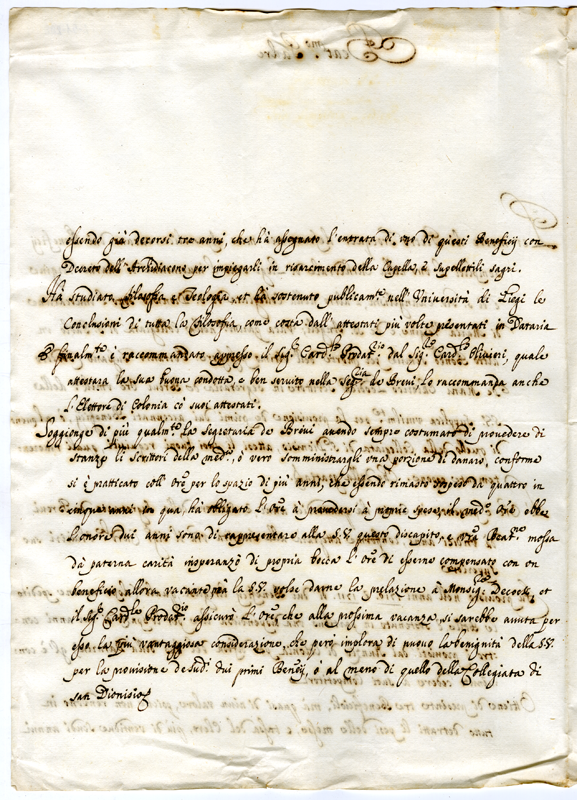 essendo già decorsi tre anni, che hà assegnato l'entrata di uno di questi Beneficij con
Decreto dell'Archidiacono per impiegarli in risarcimento della Capella, e supellettili sagri.
Hà studiata filosofia e Teologia, et hà sostenuto publicamte nell'Università di Liegi le
Conclusioni di tutta la filosofia, come costa dall'attestati più volte presentati in Dataria
E finalmte è raccommandato appresso il Sigr Cardle Prodatrio dal Sigr Cardle Olivieri, quale
attestarà la sua buona condotta, e ben servito nella Segria de Brevi, lo raccommanda anche
l'Elettore di Colonia cō suoi attestati.
Soggionge di più qualmte la Segretaria de Brevi avendo sempre costumato di provedere di
Stanze li scrittori della medma, ò vero somministrargli una porzione di danaro, conforme
si è praticato coll'Ore per lo spazio di più anni, che essendo rimasto sospeso da quattro in
cinque anni in qua, hà obligato l'Ore à provedersi à proprie spese, il medmo Ore ebbe
l'onore dui anni sono di rappresentare alla S.V. questo discapito, e Vra Beatne mossa
da paterna carità inoperanzò di propria bocca l'Ore di esserne compensato con un
beneficio allora vacante, mà la S.V. volse darne la prelazione à Monsigr Decock, et
il Sigr Cardle Prodatrio assicurò l'Ore che alla prossima vacanza si sarebbe avuta per
essa la più vantaggiosa considerazione, che però implora di nuovo la benignità della S.V.
per la provisione de sudi dui primi Benefij, ò al meno di quello della Collegiata di
san Dionisio